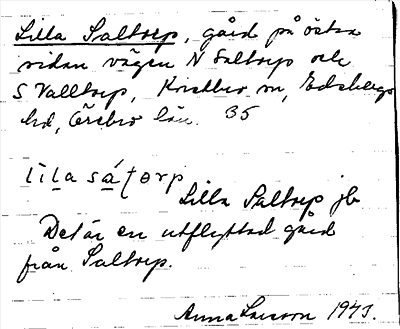 Lilla Saltorp, gård på östra
sidan vägen N Saltorp och
S Valltorp, Kvistbro sn, Edsbergs
hd, Örebro län. 35
lila sáʈorp
Lilla Saltorp jb
Det är en utflyttad gård
från Saltorp.
Anna Larsson 1943.